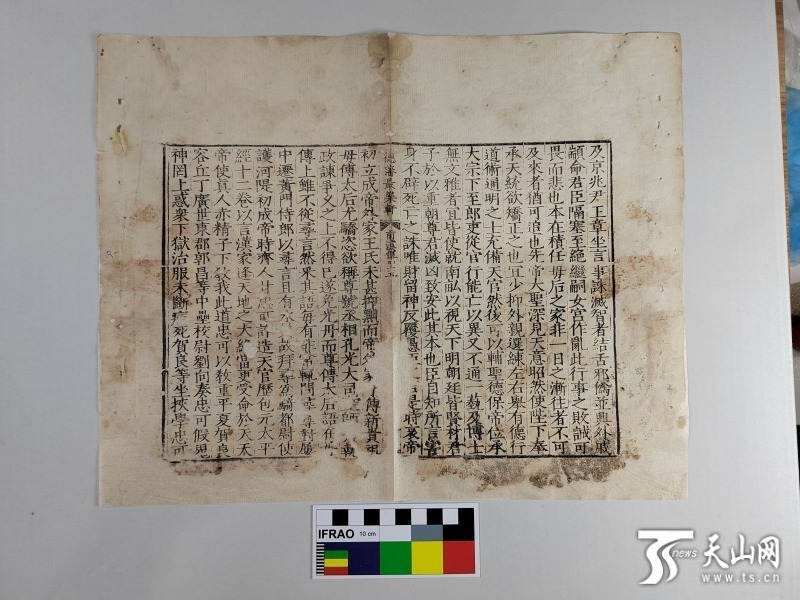 及京兆尹王章坐言事誅滅智者結舌邪僞並興外戚
顓命君臣隔塞至絶繼嗣女宮作亂此行事之敗誠可
畏而悲也本在積任母后之家非一日之漸往者不可
及來者猶可追也先帝大聖深見天意昭然使陛下奉
承天統欲矯正之也宜少抑外親選練左右舉有德行
道術通明之士充備天官然後可以輔聖德保帝位承
大宗下至郎吏從官行能亡以異又不通一藝及博士
無文雅者宜皆使就南畝以視天下明朝廷皆賢材君
子於以重朝尊君滅凶致安此其本也臣自知所言害
身不辟死亡之誅唯財留神反覆 是時哀帝
初立成帝外家王氏未甚抑黜而帝 傅新貴
母傅太后尤驕恣欲稱尊號丞相孔光大司 師 執
政諫爭久之上不得已遂免光丹而尊傅太后語在
傳上雖不從尋言然采其語每有非常輒問尋尋對屢
中遷黃門侍郎以尋言且有水 故拜尋爲騎都尉使
護河隄初成帝時齊人甘忠可詐造天官歷包元太平
經十二卷以言漢家逢天地之大終當更受命於天天
帝使真人赤精子下教我此道忠可以教重平夏賀良
容丘丁廣世東郡郭昌等中壘校尉劉向奏忠可假鬼
神罔上惑衆下獄治服未斷病死賀良等坐挾學忠可
IFRAO
10 cm
TS news 天山网
www.ts.cn